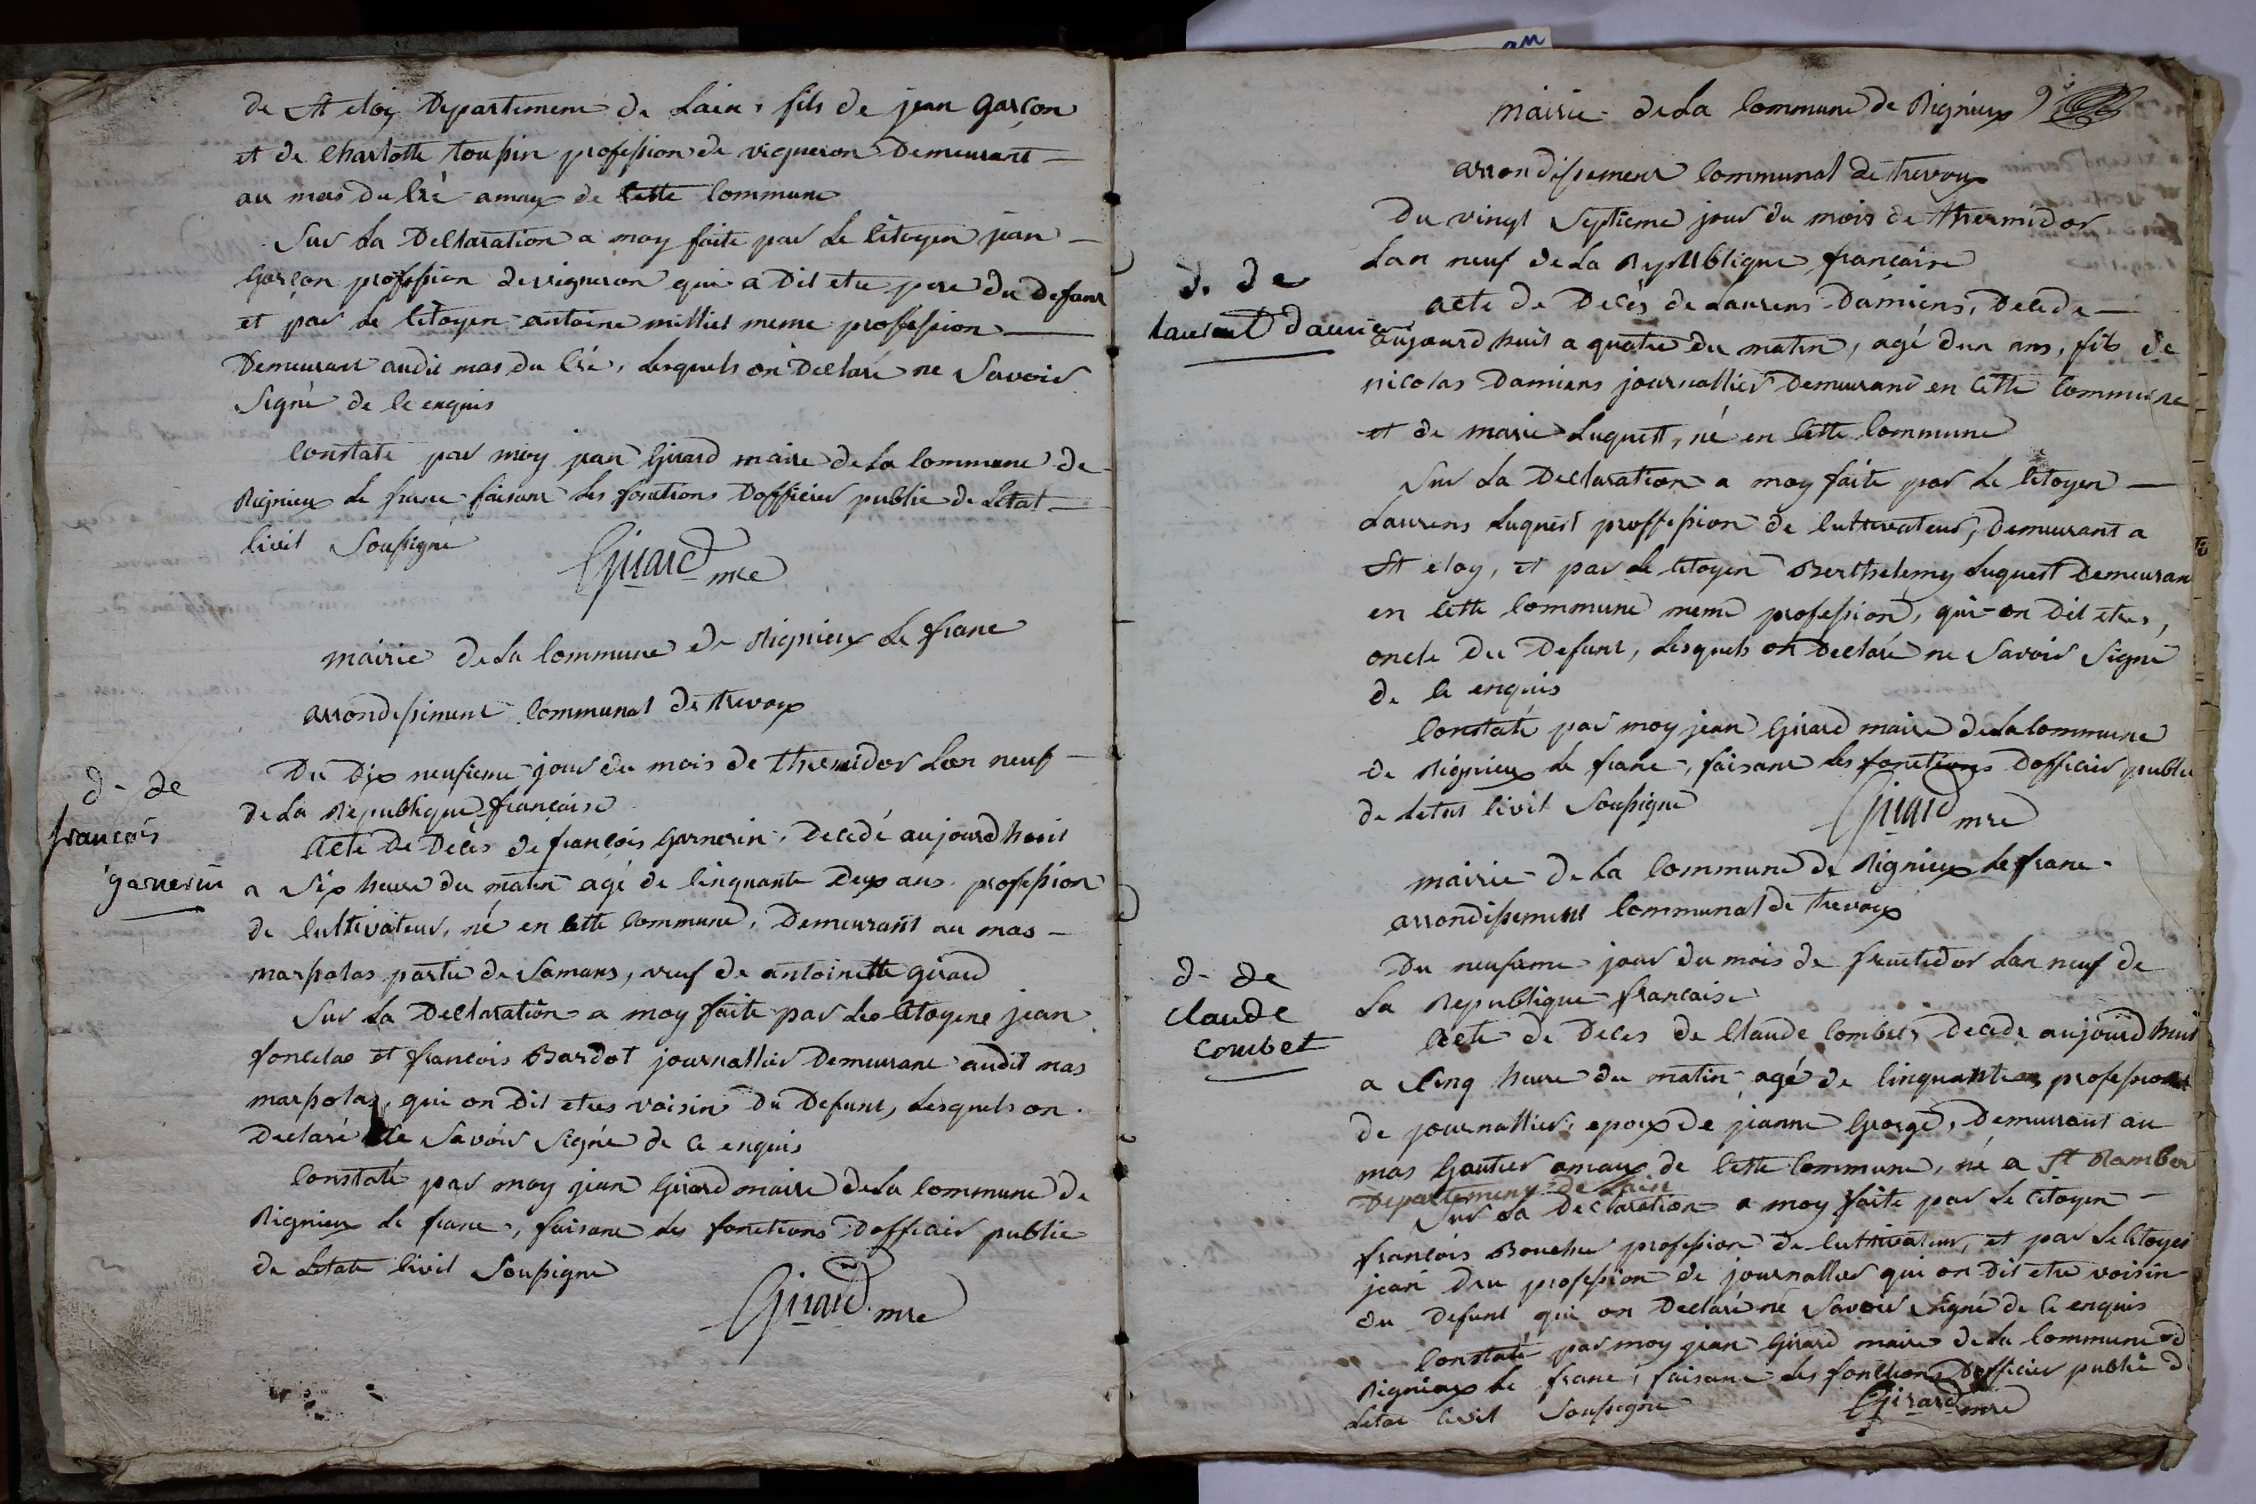 de St eloy Departement de Lain, fils de jean garçon
et de Charlotte toupin profession de vigneron Demeurant
au mas du Cré amaux de Cette Commune
Sur La Declaration a moy faite par Le Citoyen jean
garçon profession de vigneron qui a Dit etre pere Du Defunt
et par Le Citoyen antoine milliet meme profession
Demeurant audit mas du Cré, Lesquels on Declaré ne Savoir
Signé de Ce enquis
Constaté par moy jean Girard maire de La Commune de
Rignieux Le franc faisant Les fonctions Dofficier public de Letat
Civil Soussigné
Girard mre
mairie de La Commune de Rignieux Le franc
arrondissement Communal de trevoux
d. de
françois
garnerin
Du Dix neufieme jour du mois de thermidor Lan neuf
de La Republique française
acte De Décés de françois Garnerin, Decedé aujourdhuit
a Six heure du matin agé de Cinquante Deux ans profession
de Cultivateur, né en Cette Commune, Demeurant au mas
marpolas partie de Samans, veuf de antoinette girard
Sur La Declaration a moy faite par Les Citoyens jean
foncelas et francois Bardot journallier Demeurant audit mas
marpolas, qui on Dit etres voisin Du Defunt, Lesquels on
Declaré Ne Savoir Signé de Ce enquis
Constaté par moy jean Girard maire de La Commune de
Rignieux Le franc, faisant les fonctions Dofficier public
de Letate Civil Soussigné
Girard mre
mairie de La Commune de Rignieux 9
arrondissement Communal de trevoux
Du vingt Septieme jour du mois de thermidor
Lan neuf de La Republique française
d. de
laurent damiens
acte de Décés de Laurens Damiens, Decede
aujourdhuit a quatre du matin, agé dun ans, fils de
nicolas Damiens journallier Demeurant en Cette Commune
et de marie Luquet, né en Cette Commune
Sur La Declaration a moy faite par Le Citoyen
Laurens Luquest proffession de Cultivateur, Demeurant a
St eloy, et par Le Citoyen Berthelemy Luquest Demeurant
en Cette Commune meme profession, qui on Dit etres,
oncle Du Defunt, Lesquels on Declaré ne Savoir Signé
de Ce enquis
Constaté par moy jean Girard maire de La Commune
de Rignieux Le franc, faisant les fonctions Dofficier public
de Letat Civil Soussigné
Girard mre
mairie de La Commune de Rignieux Le franc
arrondissement Communal de trevoux
d. de
Claude
Combet
Du neufieme jour du mois de fructidor Lan neuf de
La Republique francaise
acte de Deces de Claude Combet, Decede aujourdhuit
a Cinq heure du matin agé de Cinquante profession
de journallier, epoux de jeanne George, Demeurant au
mas Gautier amaux de Cette Commune, né a St Rambert
Departement de Lain
Sur La Declaration a moy faite par Le Citoyen
françois Boucher profession de Cultivateur, et par Le Citoyen
jean dru profession de journallier qui on Dit etre voisin
du Defunt qui on Declaré ne Savoir Signé de Ce enquis
Constaté par moy jean Girard maire de La Commune d
Rignieux Le franc, faisant les fonctions Dofficier public d
Letat Civil Soussigné
Girard mre